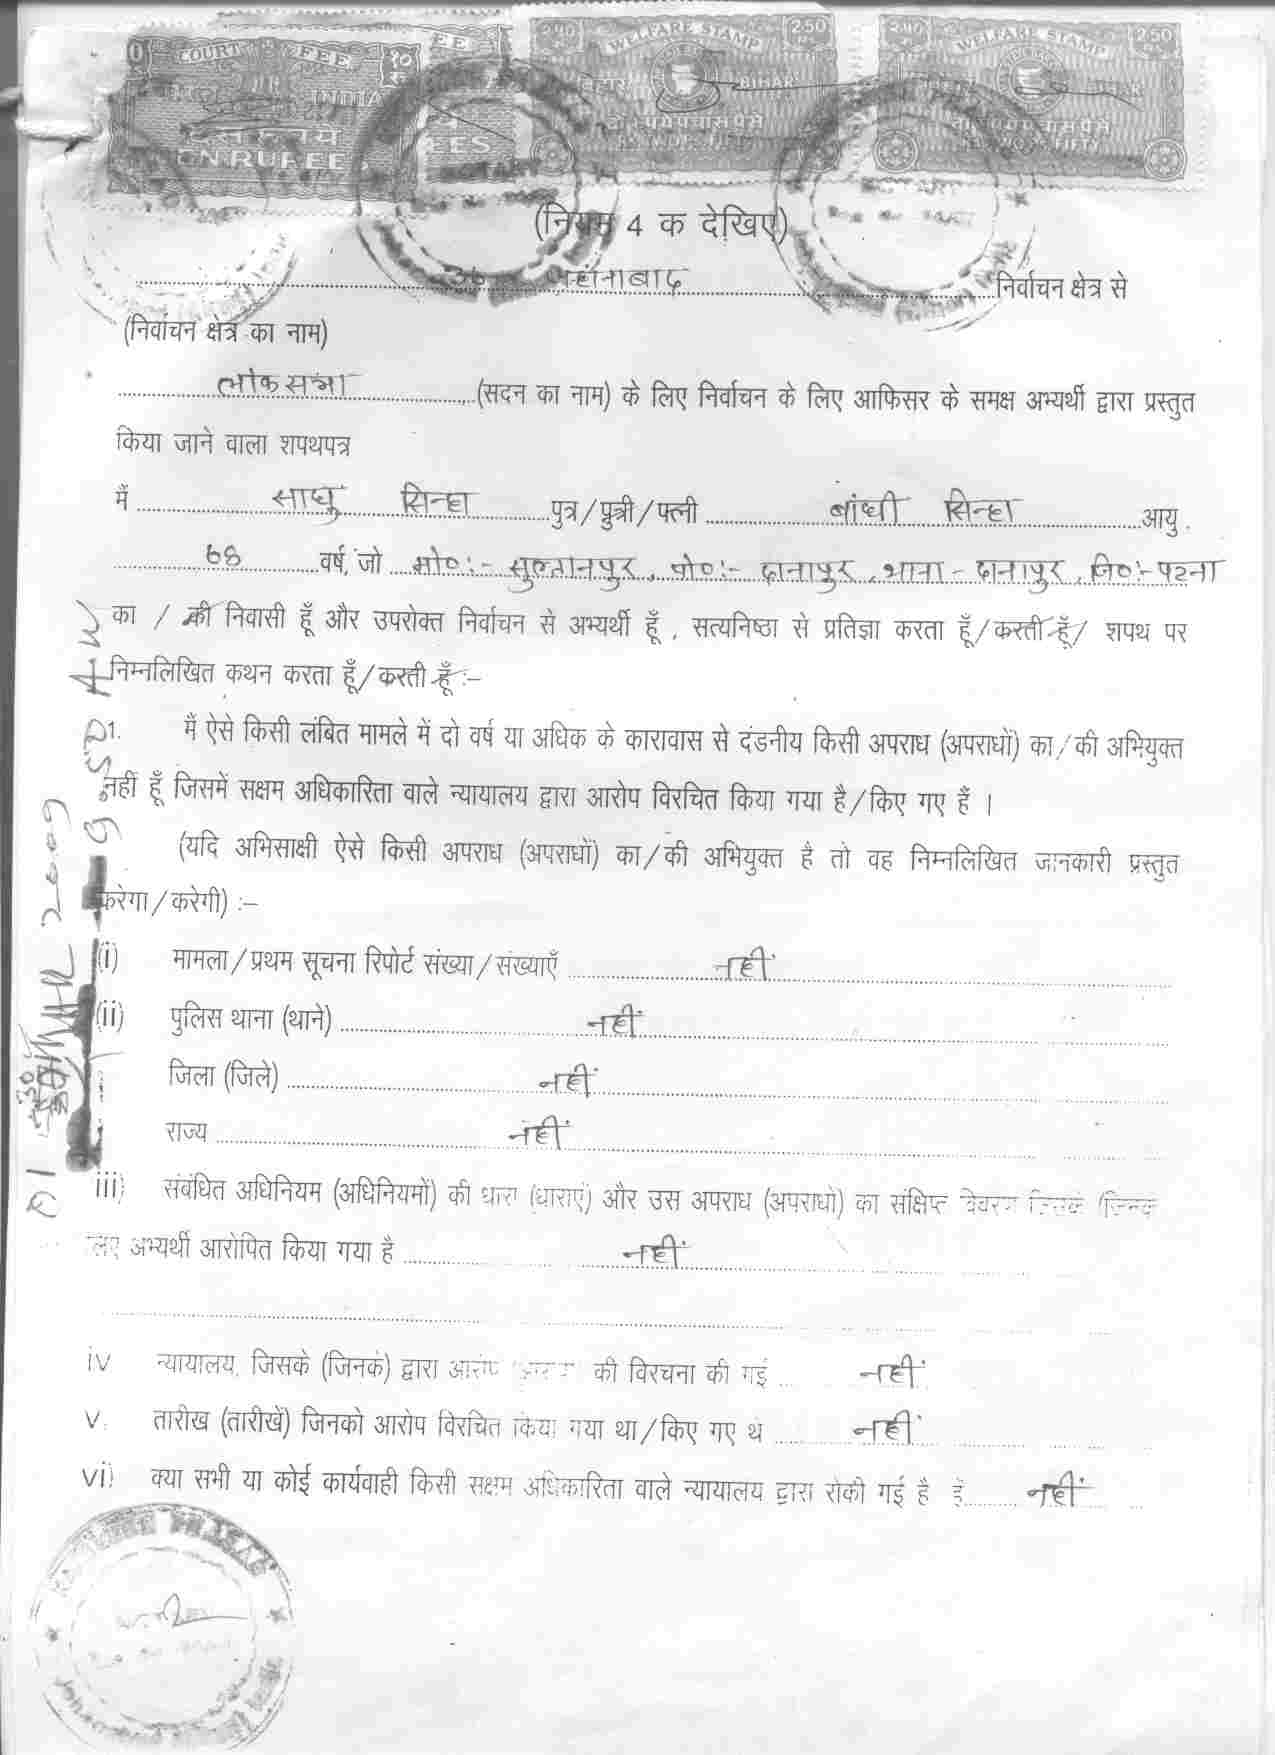 COURT FEE
INDIA
दस रुपये
TEN RUPEES
2.50
WELFARE STAMP
बिहार BIHAR
दो रुपये पचास पैसे
2.50 WELFARE STAMP 2.50
(नियम 4 क देखिए)
36 जहानाबाद निर्वाचन क्षेत्र से
(निर्वाचन क्षेत्र का नाम)
लोक सभा (सदन का नाम) के लिए निर्वाचन के लिए आफिसर के समक्ष अभ्यर्थी द्वारा प्रस्तुत
किया जाने वाला शपथपत्र
मैं साधु सिन्हा पुत्र/पुत्री/पत्नी बांधी सिन्हा आयु
68 वर्ष, जो मो०:- सुल्तानपुर, पो०:- दानापुर, थाना - दानापुर, जि०:- पटना
का / की निवासी हूँ और उपरोक्त निर्वाचन से अभ्यर्थी हूँ , सत्यनिष्ठा से प्रतिज्ञा करता हूँ/करती हूँ/ शपथ पर
निम्नलिखित कथन करता हूँ/करती हूँ :–
1. मैं ऐसे किसी लंबित मामले में दो वर्ष या अधिक के कारावास से दंडनीय किसी अपराध (अपराधों) का/की अभियुक्त
नहीं हूँ जिसमें सक्षम अधिकारिता वाले न्यायालय द्वारा आरोप विरचित किया गया है/किए गए हैं ।
(यदि अभिसाक्षी ऐसे किसी अपराध (अपराधों) का/की अभियुक्त है तो वह निम्नलिखित जानकारी प्रस्तुत
करेगा/करेगी) :–
(i) मामला/प्रथम सूचना रिपोर्ट संख्या/संख्याएँ नहीं
(ii) पुलिस थाना (थाने) नहीं
जिला (जिले) नहीं
राज्य नहीं
iii) संबंधित अधिनियम (अधिनियमों) की धारा (धाराएं) और उस अपराध (अपराधों) का संक्षिप्त विवरण जिसके (जिनके
लिए अभ्यर्थी आरोपित किया गया है नहीं
iv न्यायालय, जिसके (जिनके) द्वारा आरोप की विरचना की गई नहीं
v. तारीख (तारीखें) जिनको आरोप विरचित किया गया था/किए गए थे नहीं
vi) क्या सभी या कोई कार्यवाही किसी सक्षम अधिकारिता वाले न्यायालय द्वारा रोकी गई है हैं नहीं